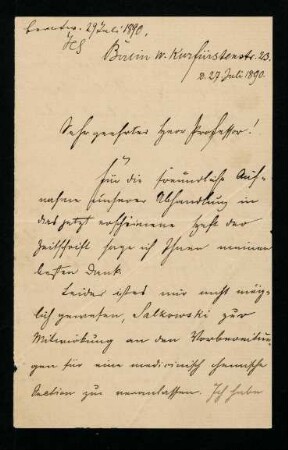 beantw. 29 Juli 1890.
HS
Berlin W. Kurfürstenstr. 23.
d. 27. Juli 1890.
Sehr geehrter Herr Professor!
Für die freundliche Auf-
nahme unserer Abhandlung in
das jetzt erschienene Heft der
Zeitschrift sage ich Ihnen meinen
besten Dank
Leider ist es mir nicht mög-
lich gewesen, Salkowski zur
Mitwirkung an den Vorbereitun-
gen für eine medicinisch chemische
Section zu veranlassen. Ich habe